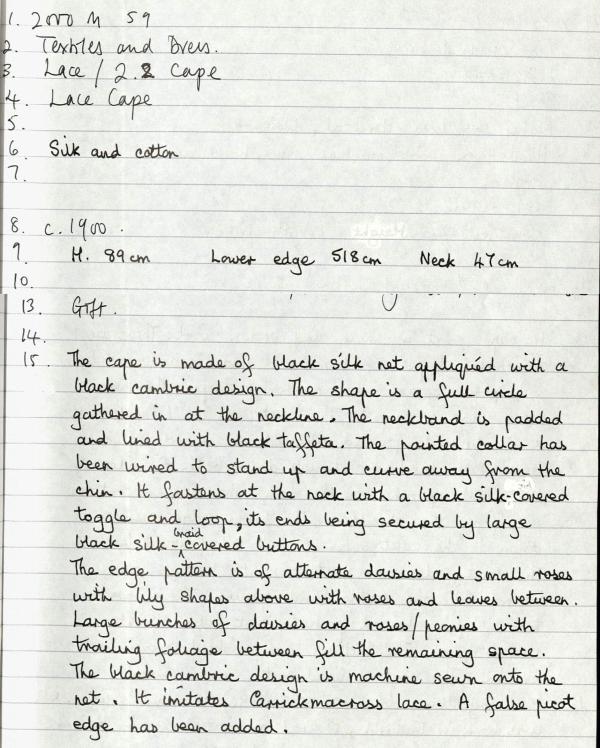 1. 2000 M 59
2. Textiles and Dress.
3. Lace / 2.2 Cape
4. Lace Cape
5.
6. Silk and cotton
7.
8. c. 1900.
9. H. 89cm Lower edge 518cm Neck 47cm
10.
13. Gift.
14.
15. The cape is made of black silk net appliquéd with a
black cambric design. The shape is a full circle
gathered in at the neckline. The neckband is padded
and lined with black taffeta. The pointed collar has
been wired to stand up and curve away from the
chin. It fastens at the neck with a black silk-covered
toggle and loop, its ends being secured by large
black silk-braid covered buttons.
The edge pattern is of alternate daisies and small roses
with lily shapes above with roses and leaves between.
Large bunches of daisies and roses/peonies with
trailing foliage between fill the remaining space.
The black cambric design is machine sewn onto the
net. It imitates Carrickmacross lace. A false picot
edge has been added.